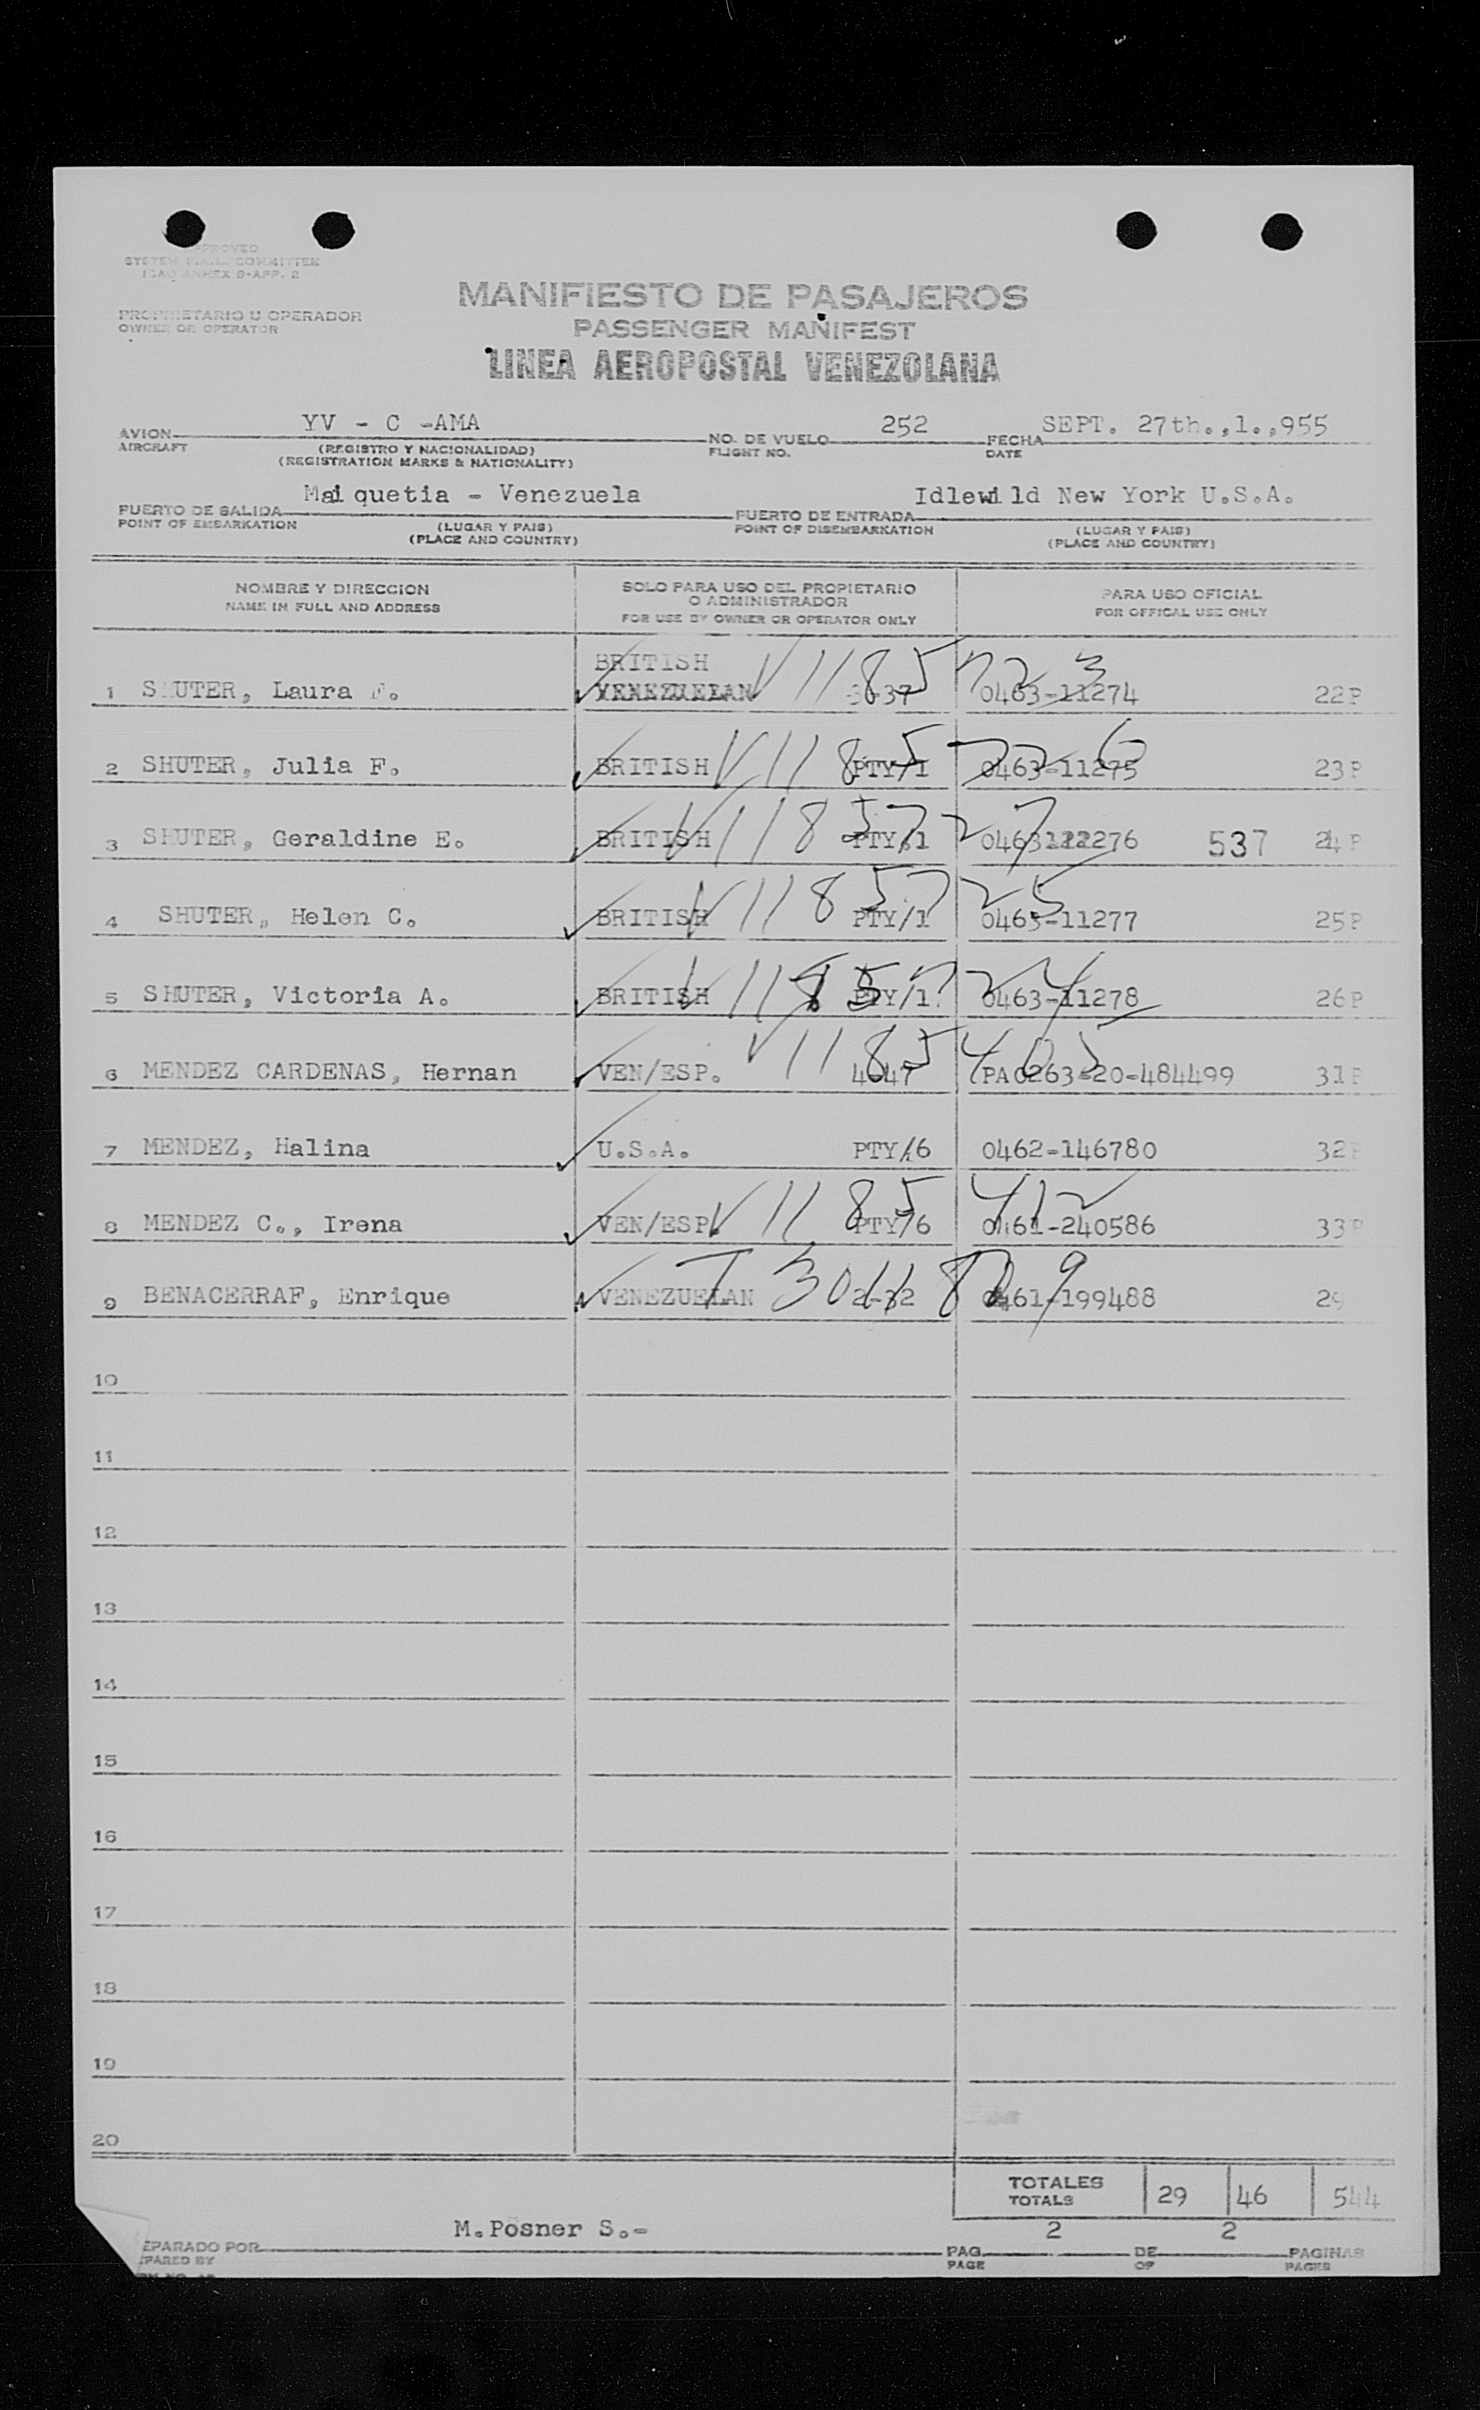 APPROVED
SYSTEM COMMITTEE
ICAO ANNEX 9-APP. 2
PROPRIETARIO U OPERADOR
OWNER OR OPERATOR
MANIFIESTO DE PASAJEROS
PASSENGER MANIFEST
LINEA AEROPOSTAL VENEZOLANA
AVION YV - C -AMA NO. DE VUELO 252 FECHA SEPT. 27th.,1.,955
AIRCRAFT (REGISTRO Y NACIONALIDAD) FLIGHT NO. DATE
(REGISTRATION MARKS & NATIONALITY)
PUERTO DE SALIDA Maiquetia - Venezuela PUERTO DE ENTRADA Idlewild New York U.S.A.
POINT OF EMBARKATION (LUGAR Y PAIS) POINT OF DISEMBARKATION (LUGAR Y PAIS)
(PLACE AND COUNTRY) (PLACE AND COUNTRY)
NOMBRE Y DIRECCION SOLO PARA USO DEL PROPIETARIO O ADMINISTRADOR PARA USO OFICIAL
NAME IN FULL AND ADDRESS FOR USE BY OWNER OR OPERATOR ONLY FOR OFFICAL USE ONLY
BRITISH V1185723
1 SHUTER, Laura F. VENEZUELAN 3637 0463-11274 22P
2 SHUTER, Julia F. BRITISH V1185726 PTY/1 0463-11275 23P
3 SHUTER, Geraldine E. BRITISH V1185727 PTY/1 0463 276 537 24P
4 SHUTER, Helen C. BRITISH V1185725 PTY/1 0463-11277 25P
5 SHUTER, Victoria A. BRITISH V1185724 PTY/1 0463-11278 26P
6 MENDEZ CARDENAS, Hernan VEN/ESP. V1185405 4647 PA0263-20-484499 31P
7 MENDEZ, Halina U.S.A. PTY/6 0462-146780 32P
8 MENDEZ C., Irena VEN/ESP. V1185412 PTY/6 0461-240586 33P
9 BENACERRAF, Enrique VENEZUELAN 2-32 0461-199488 29
10
11
12
13
14
15
16
17
18
19
20
TOTALES 29 46 544
TOTALS
M.Posner S.- 2 2
EPARADO POR PAG. DE PAGINAS
PARED BY PAGE OF PAGES